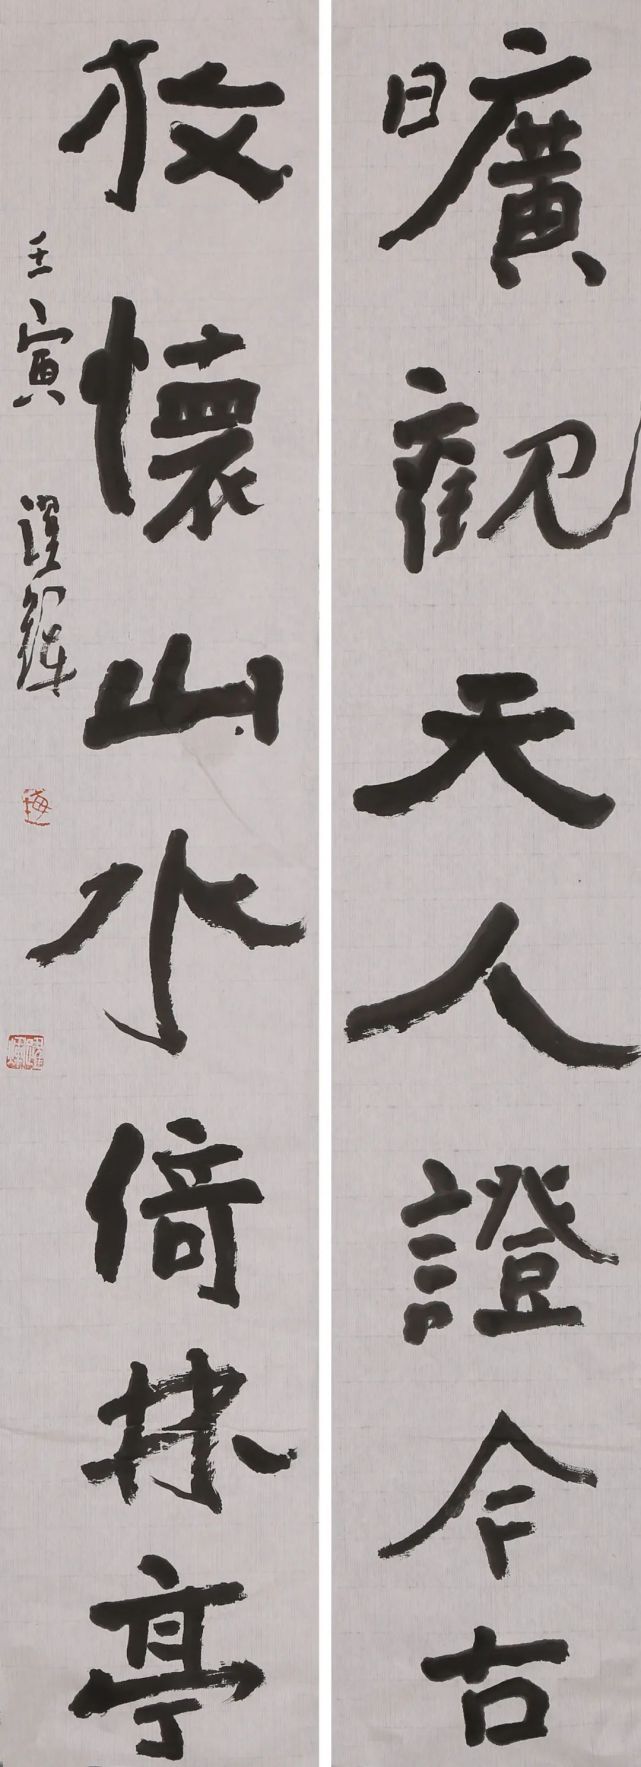 曠觀天人證今古
放懷山水倚林亭
壬寅 躍輝